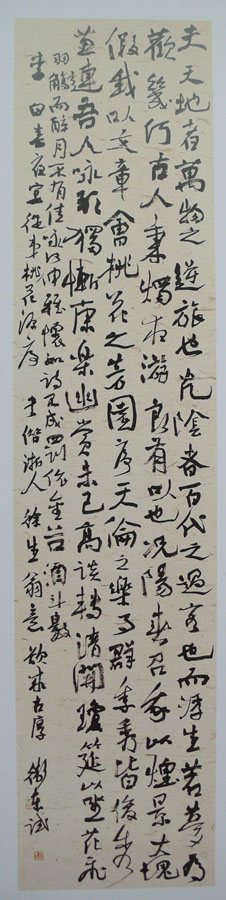 夫天地者萬物之逆旅也光陰者百代之過客也而浮生若夢為
歡幾何古人秉燭夜游良有以也況陽春召我以煙景大塊
假我以文章會桃花之芳園序天倫之樂事群季秀皆俊
惠連吾人詠歌獨慚康樂幽賞未已高談轉清開瓊筵以坐花飛
羽觴而醉月不有佳詠何伸雅懷如詩不成罰依金谷酒斗數
李白春夜宴從弟桃花源序 浙人徐生翁意 求古厚 衛東試